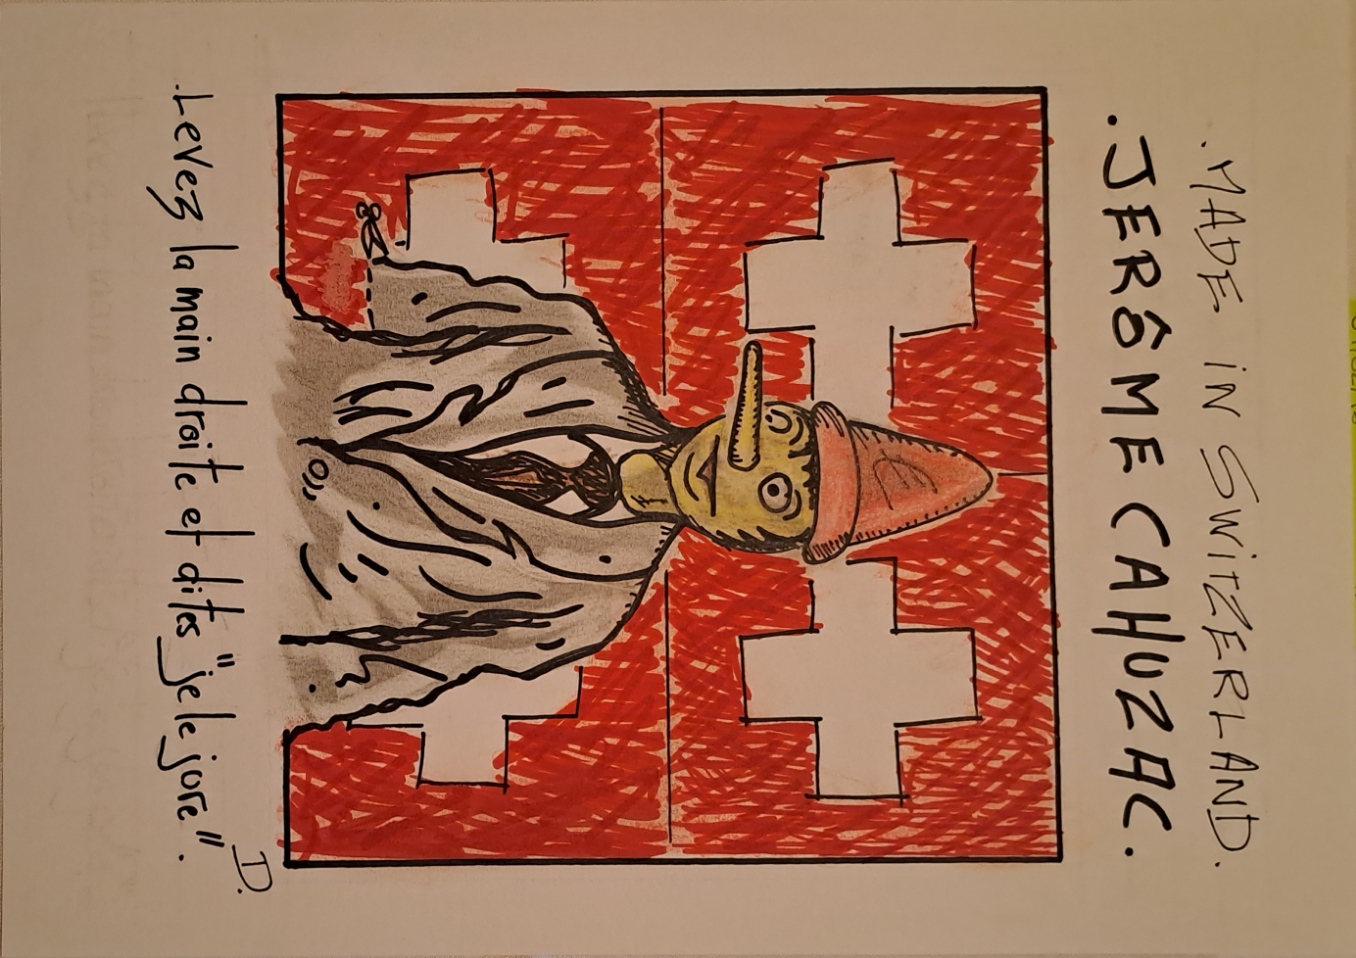 . MADE IN SWITZERLAND.
. JERÔME CAHUZAC.
€
. Levez la main droite et dites "je le jure".
D.